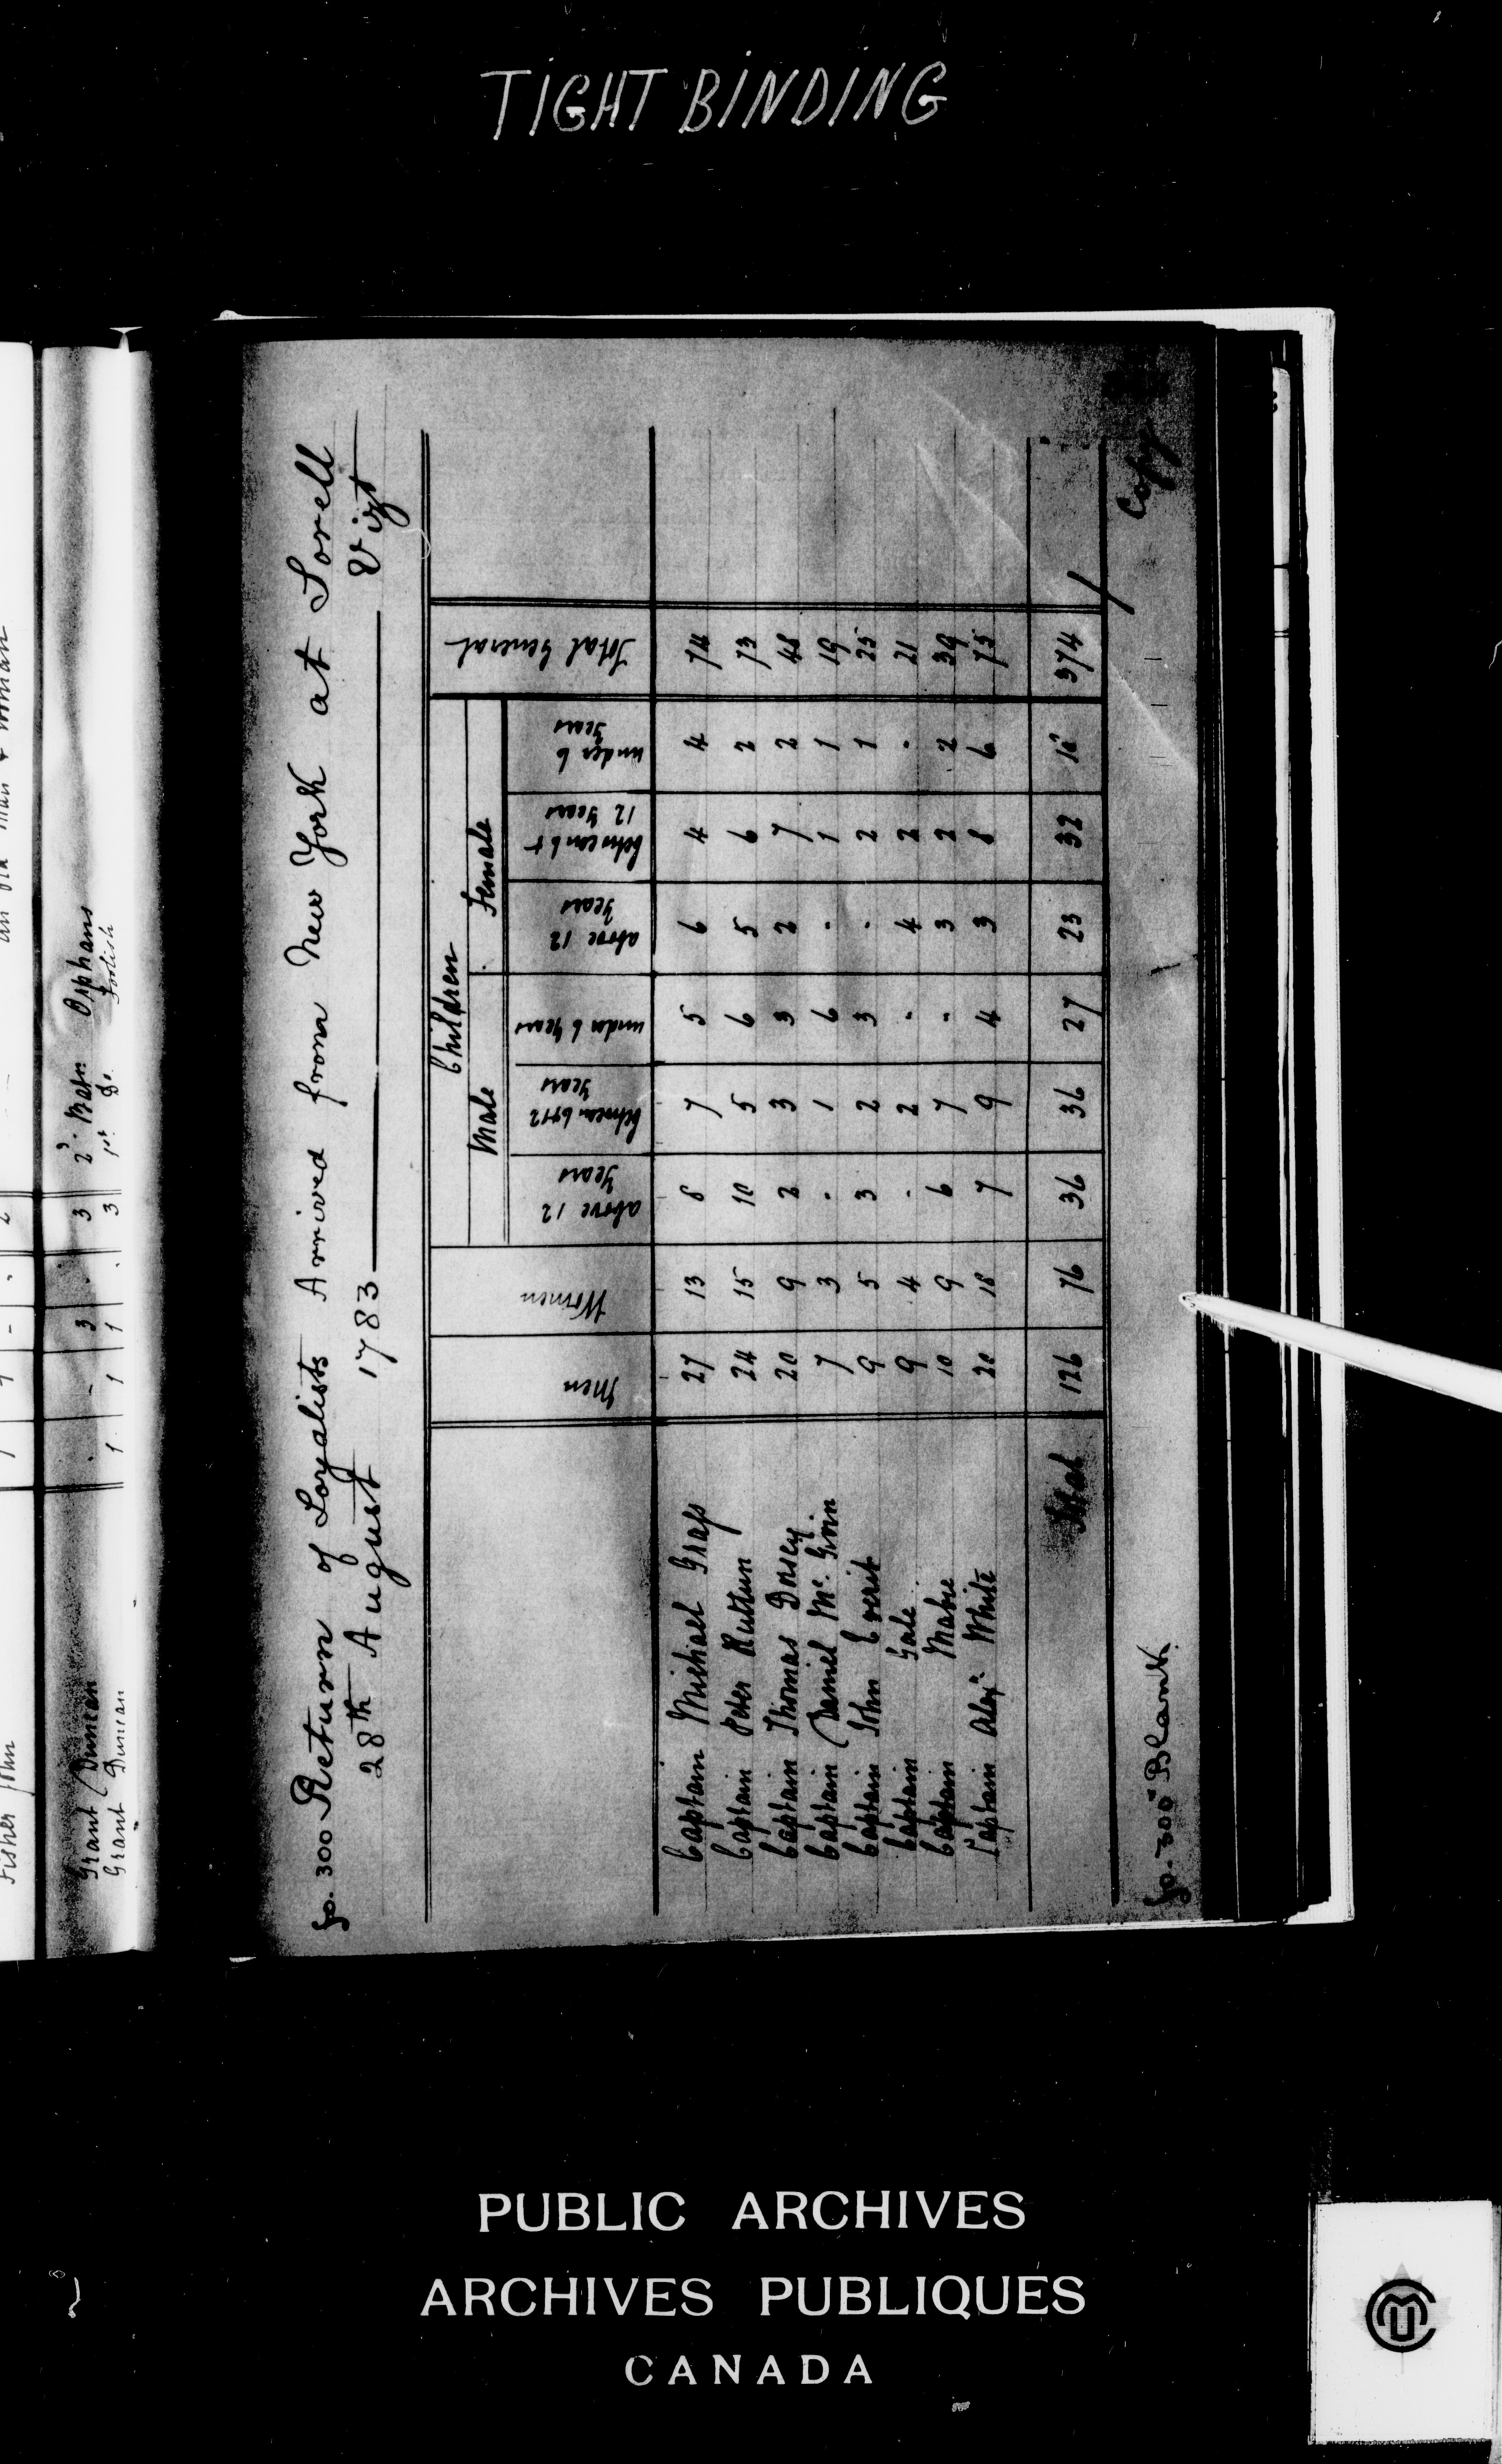 TIGHT BINDING
fo. 300 Return of Loyalists Arrived from New York at Sorell
28th August 1783 Vizt
Men Women Children Total General
Male Female
above 12 Years between 6 & 12 Years under 6 Years above 12 Years between 6 & 12 Years under 6 Years
Captain Michael Grass 27 13 8 7 5 6 4 4 74
Captain Peter Ruttun 24 15 10 5 6 5 6 2 73
Captain Thomas Dorsey 20 9 2 3 3 2 7 2 48
Captain Daniel Mc. Givin 7 3 . 1 6 . 1 1 19
Captain John Everit 9 5 3 2 3 . 2 1 25
Captain Gale 9 4 . 2 . 4 2 . 21
Captain Mabie 10 9 6 7 . 3 2 2 39
Captain Alexr. White 20 18 7 9 4 3 8 6 75
Total 126 76 36 36 27 23 32 18 374
Copy
fo. 300 Blank
Fisher John
an old man & woman
Grant Duncan . - 3 . 3 2d. Batn Orphans
Grant Duncan 1 1 1 . 3 1st. Do. Foolish
PUBLIC ARCHIVES
ARCHIVES PUBLIQUES
CANADA